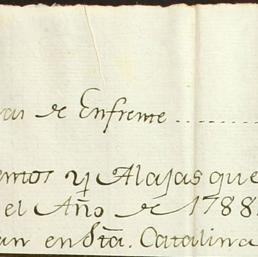 de Enfrente ........
y Alajas que
el Año de 1788
en Sta. Catalina